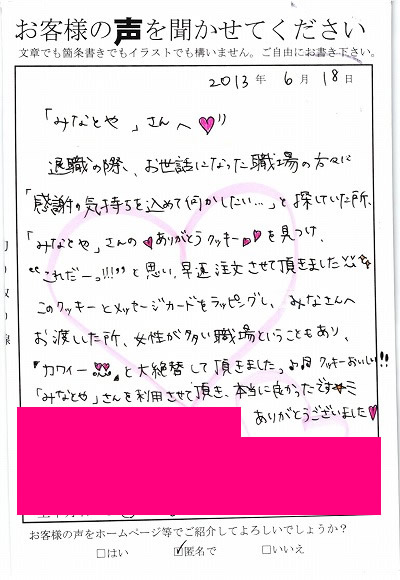 お客様の声を聞かせてください
文章でも箇条書きでもイラストでも構いません。ご自由にお書き下さい。
2013年 6月 18日
「みなとや」さんへ
退職の際、お世話になった職場の方々に
「感謝の気持ちを込めて何かしたい…」と探していた所、
「みなとや」さんの ありがとうクッキー を見つけ、
"これだーっ!!!"と思い、早速注文させて頂きました
このクッキーとメッセージカードをラッピングし、みなさんへ
お渡しした所、女性が多い職場ということもあり、
『カワイー』と大絶賛して頂きました。クッキーおいしい!!
「みなとや」さんを利用させて頂き、本当に良かったです
ありがとうございました
お客様の声をホームページ等でご紹介してよろしいでしょうか？
□はい ☑匿名で □いいえ